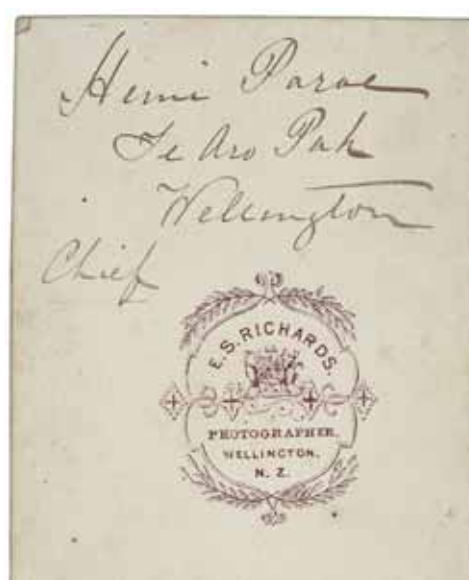 Hemi Parae
Te Aro Pah
Wellington
Chief
E.S. RICHARDS.
PHOTOGRAPHER,
WELLINGTON,
N. Z.